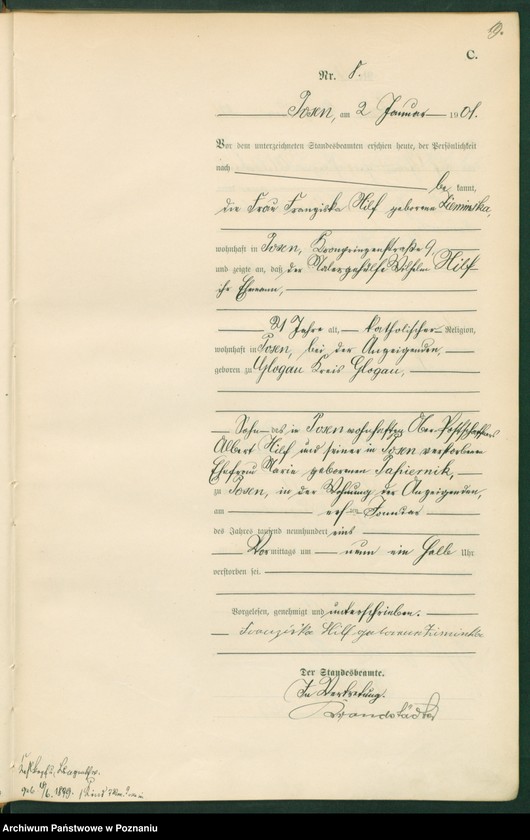 9.
C.
Nr. 8.
Posen, am 2 Januar 1901.
Vor dem unterzeichneten Standesbeamten erschien heute, der Persönlichkeit
nach
bekannt,
die Frau Franziska Hilf geborene Zieminska,
wohnhaft in Posen, Kronprinzenstraße 9,
und zeigte an, daß der Malergehülfe Wilhelm Hilf
ihr Ehemann,
21 Jahre alt, katholischer Religion,
wohnhaft in Posen, bei der Anzeigenden,
geboren zu Glogau Kreis Glogau,
Sohn des in Posen wohnhaften Ober-Postschaffners
Albert Hilf und seiner in Posen verstorbenen
Ehefrau Marie geborenen Papiernik,
zu Posen, in der Wohnung der Anzeigenden,
am ersten Januar
des Jahres tausend neunhundert eins
Vormittags um neun ein halb Uhr
verstorben sei.
Vorgelesen, genehmigt und unterschrieben.
Franziska Hilf geborene Zieminska
Der Standesbeamte.
In Vertretung.
Brandstädter
1879.
Archiwum Państwowe w Poznaniu